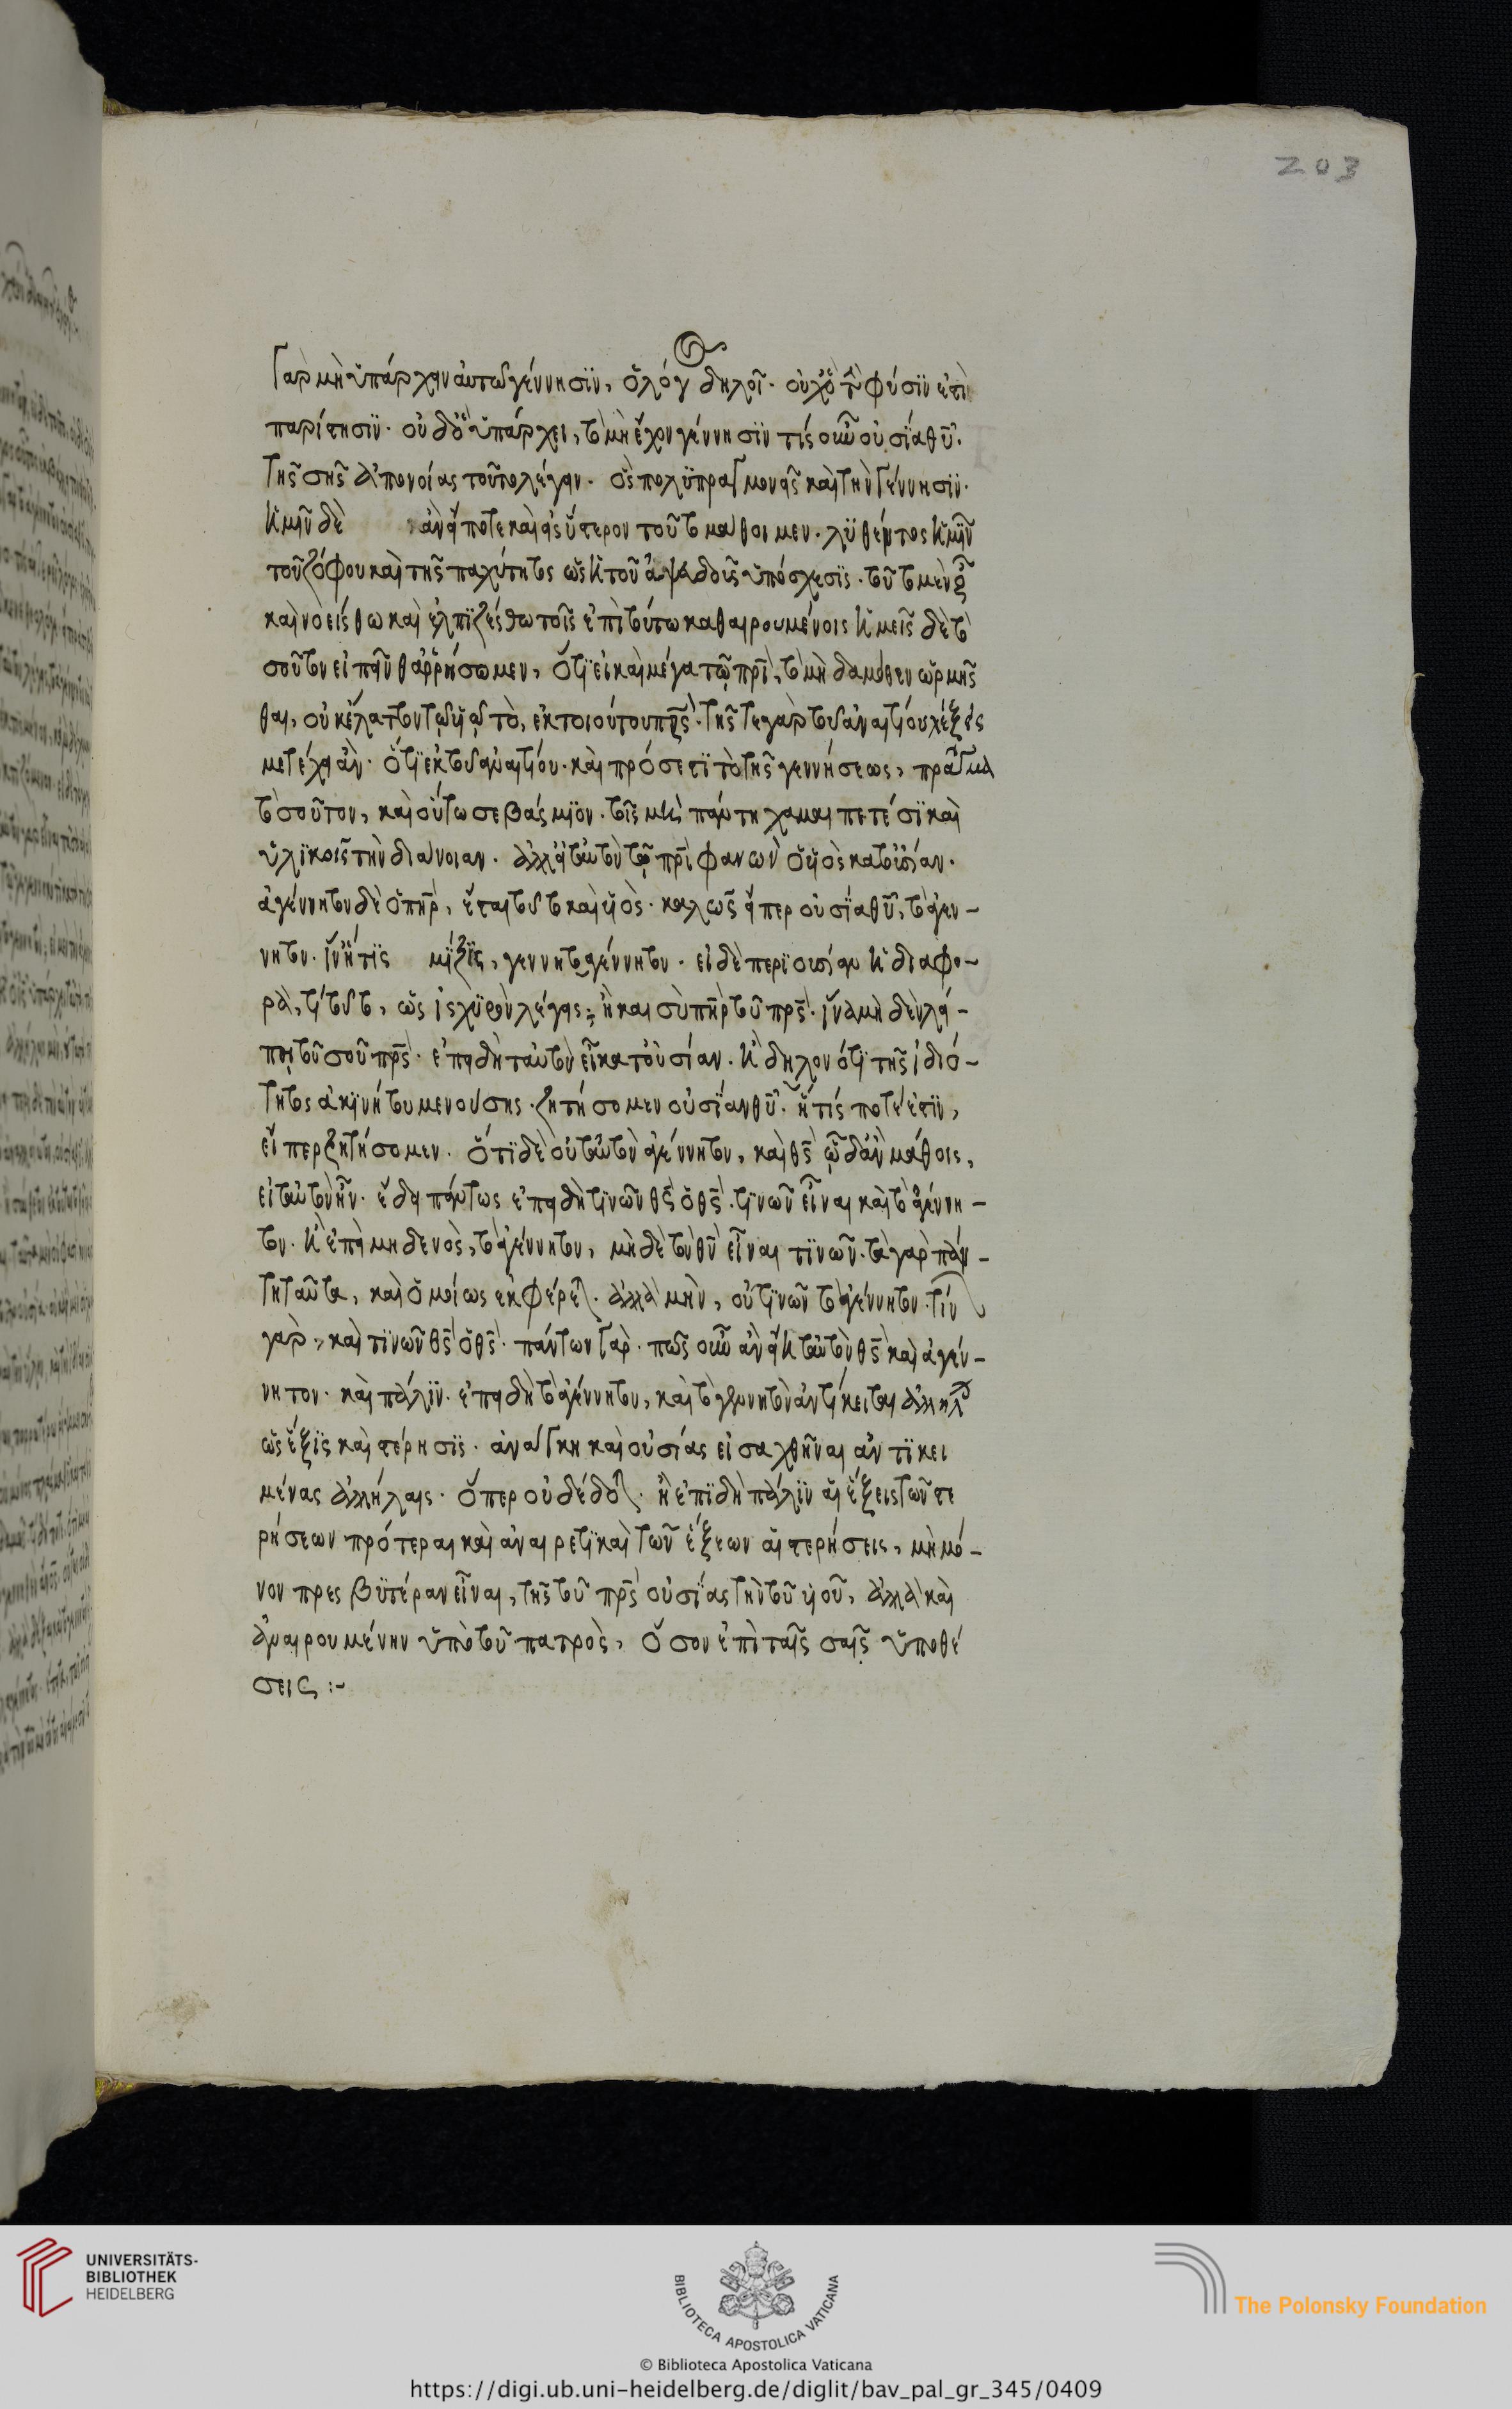 203
γὰρ μὴ ὑπάρχειν αὐτῷ γέννησϊν, ὁ λόγ δηλοῖ· οὐχ ὃ τὴν φύσϊν ἐστὶ
παρίστησϊν· οὐδ ὃ ὑπάρχει, τὸ μὴ ἔχον γέννησϊν τίς οὖν οὐσία θῦ·
τῆς σῆς ἀπονοίας τοῦτο λέγειν· ὃς πολϋπραγμονεῖς καὶ τὴν γέννησϊν·
ἡμῖν δὲ ἂν εἴ ποτε καὶ εἰς ὕστερον τοῦτο μάθοιμεν· λϋθέντος ἡμῖν
τοῦ ζόφου καὶ τῆς παχύτητος ὡς ἡ τοῦ ἀψευδοῦς ὑπόσχεσϊς· τοῦτο μὲν
καὶ νοείσθω καὶ ἐλπϊζέσθω τοῖς ἐπὶ τούτω καθαιρουμένοις ἡμεῖς δὲ τὸ
σοῦτον εἰπεῖν θαῤῥήσωμεν, ὅτϊ εἰ καὶ μέγα τῷ πρϊ, τὸ μηδαμόθεν ὡρμῆσ
θαι, οὐκ ἔλαττον τῷ ϋἱῷ τὸ, ἐκ τοιούτου πρς· τῆς τε γὰρ τοῦ ἀναιτίου
μετέχει ἂν· ὅτϊ ἐκ τοῦ ἀναιτίου· καὶ πρόσεστϊ τὸ τῆς γεννήσεως, πρᾶγμα
τοσοῦτον, καὶ οὕτω σεβάσμϊον· τοῖς μὴ πάντη χαμαιπετέσϊ καὶ
ὑλϊκοῖς τὴν διάνοιαν· ἀλλ εἰ ταὐτὸν τῷ πρϊ φασὶν ὁ ϋἱὸς κατ οὐσίαν·
ἀγέννητον δὲ ὁ πηρ, ἔσται τοῦτο καὶ ϋἱὸς· καλῶς εἴπερ οὐσΐα θῦ, τὸ ἀγέν-
νητον· ἵν ᾖ τϊς μίξϊς, γεννητοαγέννητον· εἰ δὲ περϊ οὐσίαν ἡ διαφο-
ρὰ, τί τοῦτο, ὡς ἰσχϋρὸν λέγεις; ἢ καὶ σὺ πηρ τοῦ πρς· ἵνα μηδὲν λεί-
πῃ τοῦ σοῦ πρς· ἐπειδὴ ταὐτὸν εἶ κατ οὐσίαν· ἢ δῆλον ὅτϊ τῆς ἰδιό-
τητος ἀκϊνήτου μενούσης· ζητήσομεν οὐσΐαν θῦ· ἥτίς ποτέ ἐστϊν,
εἴπερ ζητήσομεν· ὅτϊ δὲ οὐ ταὐτὸν ἀγέννητον, καὶ θς ὧδ ἂν μάθοις,
εἰ ταὐτὸν ἦν· ἔδει πάντως ἐπειδὴ τϊνῶν θς ὁ θς· τϊνῶν εἶναι καὶ τὸ ἀγέννη-
τον· ἢ ἐπεὶ μηδενὸς, τὸ ἀγέννητον, μηδὲ τὸν θν εἶναι τϊνῶν· τὰ γὰρ πάν-
τη ταῦτα, καὶ ὁμοίως ἐκφέρετ· ἀλλὰ μὴν, οὐ τϊνῶν τὸ ἀγέννητον· τίν
γὰρ, καὶ τϊνῶν θς ὁ θς· πάντων γὰρ· πῶς οὖν ἂν εἴη ταὐτὸν θς καὶ ἀγέν-
νητον· καὶ πάλϊν· ἐπειδὴ τὸ ἀγέννητον, καὶ τὸ γεννητὸν ἀντίκειται ἀλλήλ
ὡς ἕξϊς καὶ στέρησϊς· ἀνάγκη καὶ οὐσίας εἰσαχθῆναι ἀντϊκει
μένας ἀλλήλαις· ὅπερ οὐ δέδοτ· ἢ ἐπϊδὴ πάλϊν αἱ ἕξεις τῶν στε
ρήσεων πρότεραι καὶ ἀναιρετϊκαὶ τῶν ἕξεων αἱ στερήσεις, μὴ μό-
νον πρεσβϋτέραν εἶναι, τῆς τοῦ πρς οὐσΐας τὴν τοῦ υἱοῦ, ἀλλὰ καὶ
ἀναιρουμένην ὑπὸ τοῦ πατρὸς, ὅσον ἐπὶ ταῖς σαῖς ὑποθέ
σεις :-
UNIVERSITÄTS-
BIBLIOTHEK
HEIDELBERG
BIBLIOTECA APOSTOLICA VATICANA
The Polonsky Foundation
© Biblioteca Apostolica Vaticana
https://digi.ub.uni-heidelberg.de/diglit/bav_pal_gr_345/0409